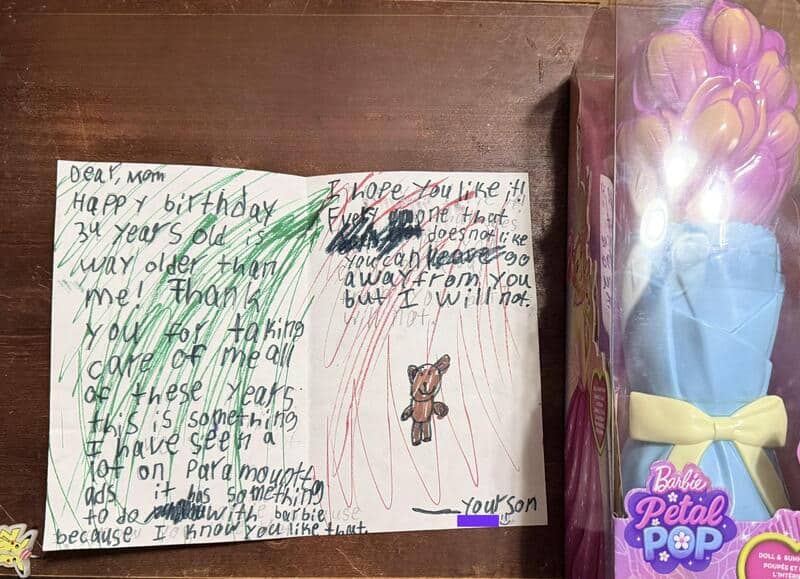 Dear, mom
Happy birthday
34 years old is
way older than
me! Thank
you for taking
care of me all
of these years.
this is something
I have seen a
lot on Paramount+
ads it has something
to do with barbie
because I know you like that.
I hope you like it!
Every one that
does not like
you can go
away from you
but I will not.
will not.
your son
Barbie
Petal
POP
DOLL &
POUPÉE ET